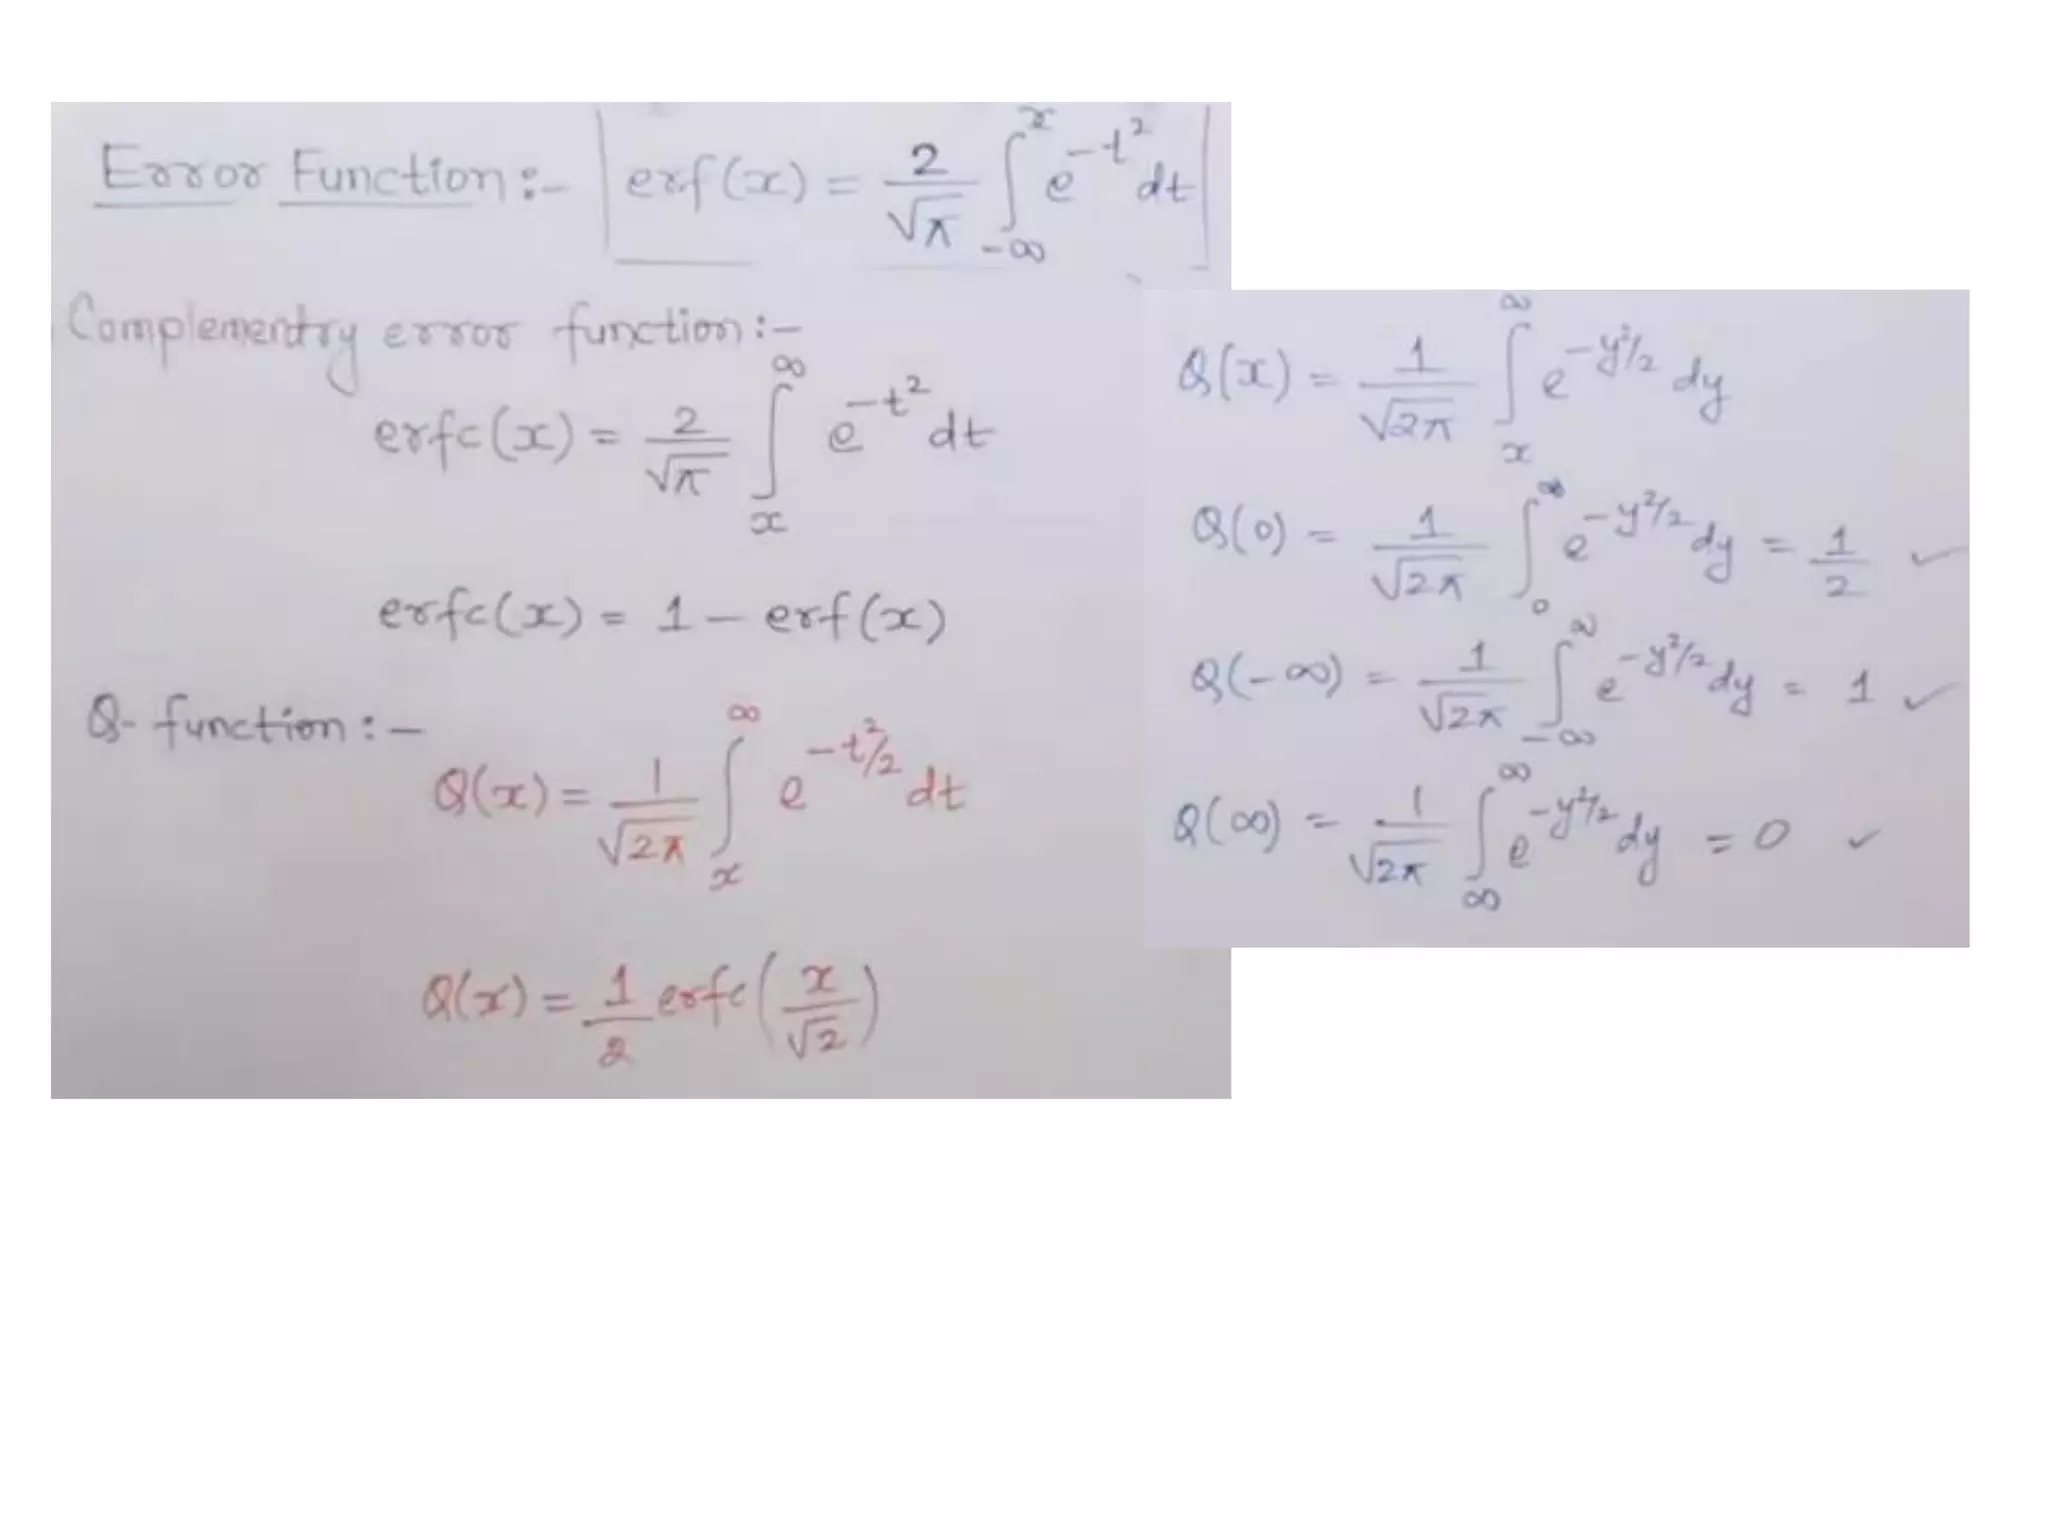 Error Function :- erf(x) = 2/√π ∫_{-∞}^{x} e^{-t²} dt
Complementry error function :-
erfc(x) = 2/√π ∫_{x}^{∞} e^{-t²} dt
erfc(x) = 1 - erf(x)
Q- function :-
Q(x) = 1/√2π ∫_{x}^{∞} e^{-t²/2} dt
Q(x) = 1/2 erfc(x/√2)
Q(x) = 1/√2π ∫_{x}^{∞} e^{-y²/2} dy
Q(0) = 1/√2π ∫_{0}^{∞} e^{-y²/2} dy = 1/2 ✓
Q(-∞) = 1/√2π ∫_{-∞}^{∞} e^{-y²/2} dy = 1 ✓
Q(∞) = 1/√2π ∫_{∞}^{∞} e^{-y²/2} dy = 0 ✓